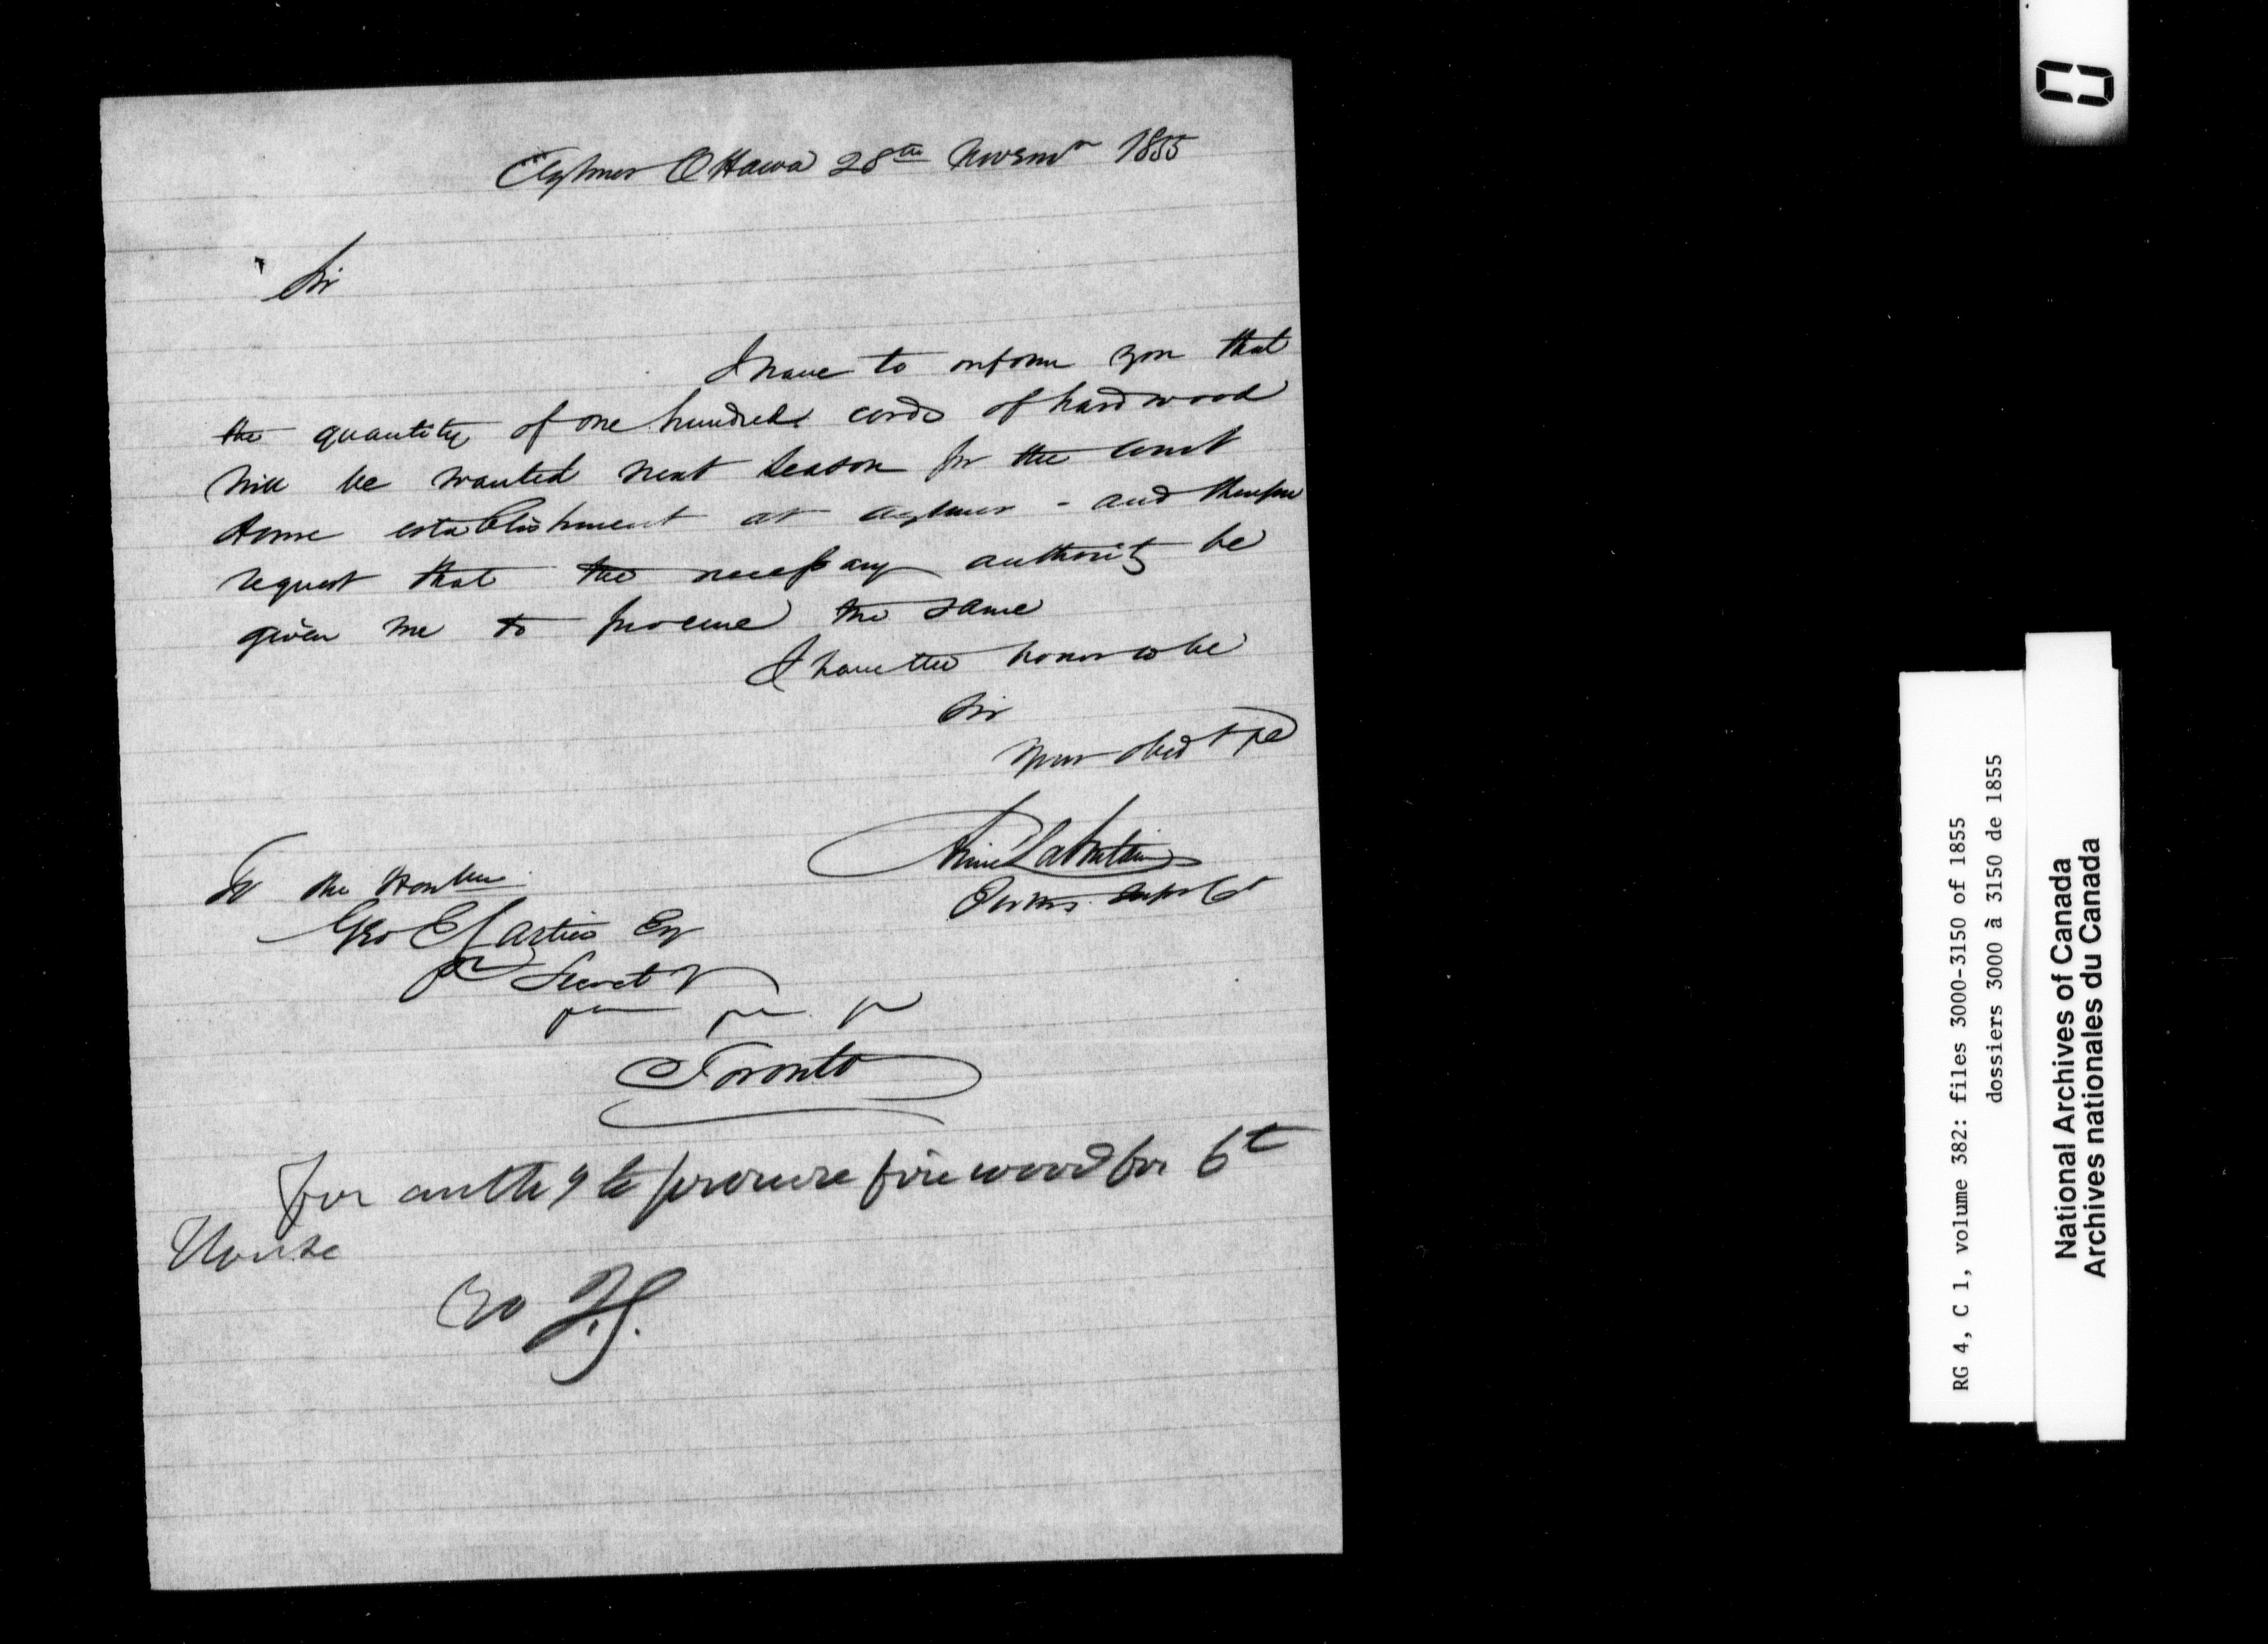 Aylmer Ottawa 28th Novemr 1855
Sir
I have to inform you that
the quantity of one hundred cords of hard wood
will be wanted next season for the Court
House establishment at Aylmer - and therefore
request that the necessary authority be
given me to procure the same
I have the honor to be
Sir
your obedt
To the Honble
Geo E Cartier Esq
Secrety
Toronto
For authy to procure fire wood for Ct
House
RG 4, C 1, volume 382: files 3000-3150 of 1855
dossiers 3000 à 3150 de 1855
National Archives of Canada
Archives nationales du Canada